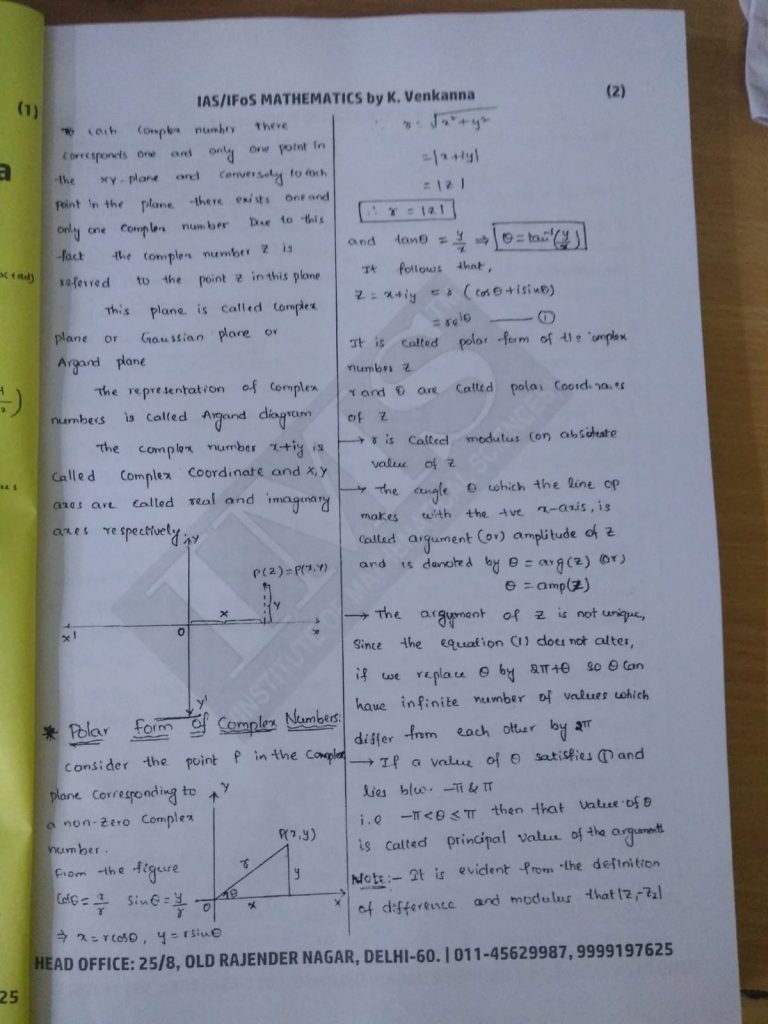 (1)
IAS/IFoS MATHEMATICS by K. Venkanna
(2)
To each complex number there
corresponds one and only one point in
the xy-plane and conversely to each
point in the plane there exists one and
only one complex number Due to this
fact the complex number z is
referred to the point z in this plane
This plane is called complex
plane or Gaussian plane or
Argand plane
The representation of complex
numbers is called Argand diagram
The complex number x+iy is
called complex coordinate and x, y
axes are called real and imaginary
axes respectively.
y
P(z)=P(x,y)
y
x
x'
O
x
y'
* Polar Form of Complex Numbers:
consider the point P in the complex
plane corresponding to
a non-zero complex
number.
From the figure
cosθ = x/r sinθ = y/r
⇒ x = rcosθ, y = rsinθ
y
P(x,y)
r
y
θ
O
x
x
∴ r = √x²+y²
= |x+iy|
= |z|
∴ r = |z|
and tanθ = y/x ⇒ θ = tan⁻¹(y/x)
It follows that,
z = x+iy = r (cosθ+isinθ)
= re^iθ —— ①
It is called polar form of the complex
number z
r and θ are called polar coordinates
of z
→ r is called modulus (or) absolute
value of z
→ The angle θ which the line op
makes with the +ve x-axis, is
called argument (or) amplitude of z
and is denoted by θ = arg(z) (or)
θ = amp(z)
→ The argument of z is not unique,
since the equation (1) does not alter,
if we replace θ by 2π+θ so θ can
have infinite number of values which
differ from each other by 2π
→ If a value of θ satisfies ① and
lies b/w. -π & π
i.e -π<θ≤π then that value of θ
is called principal value of the argument
Note:- It is evident from the definition
of difference and modulus that |z₁-z₂|
HEAD OFFICE: 25/8, OLD RAJENDER NAGAR, DELHI-60. | 011-45629987, 9999197625
25